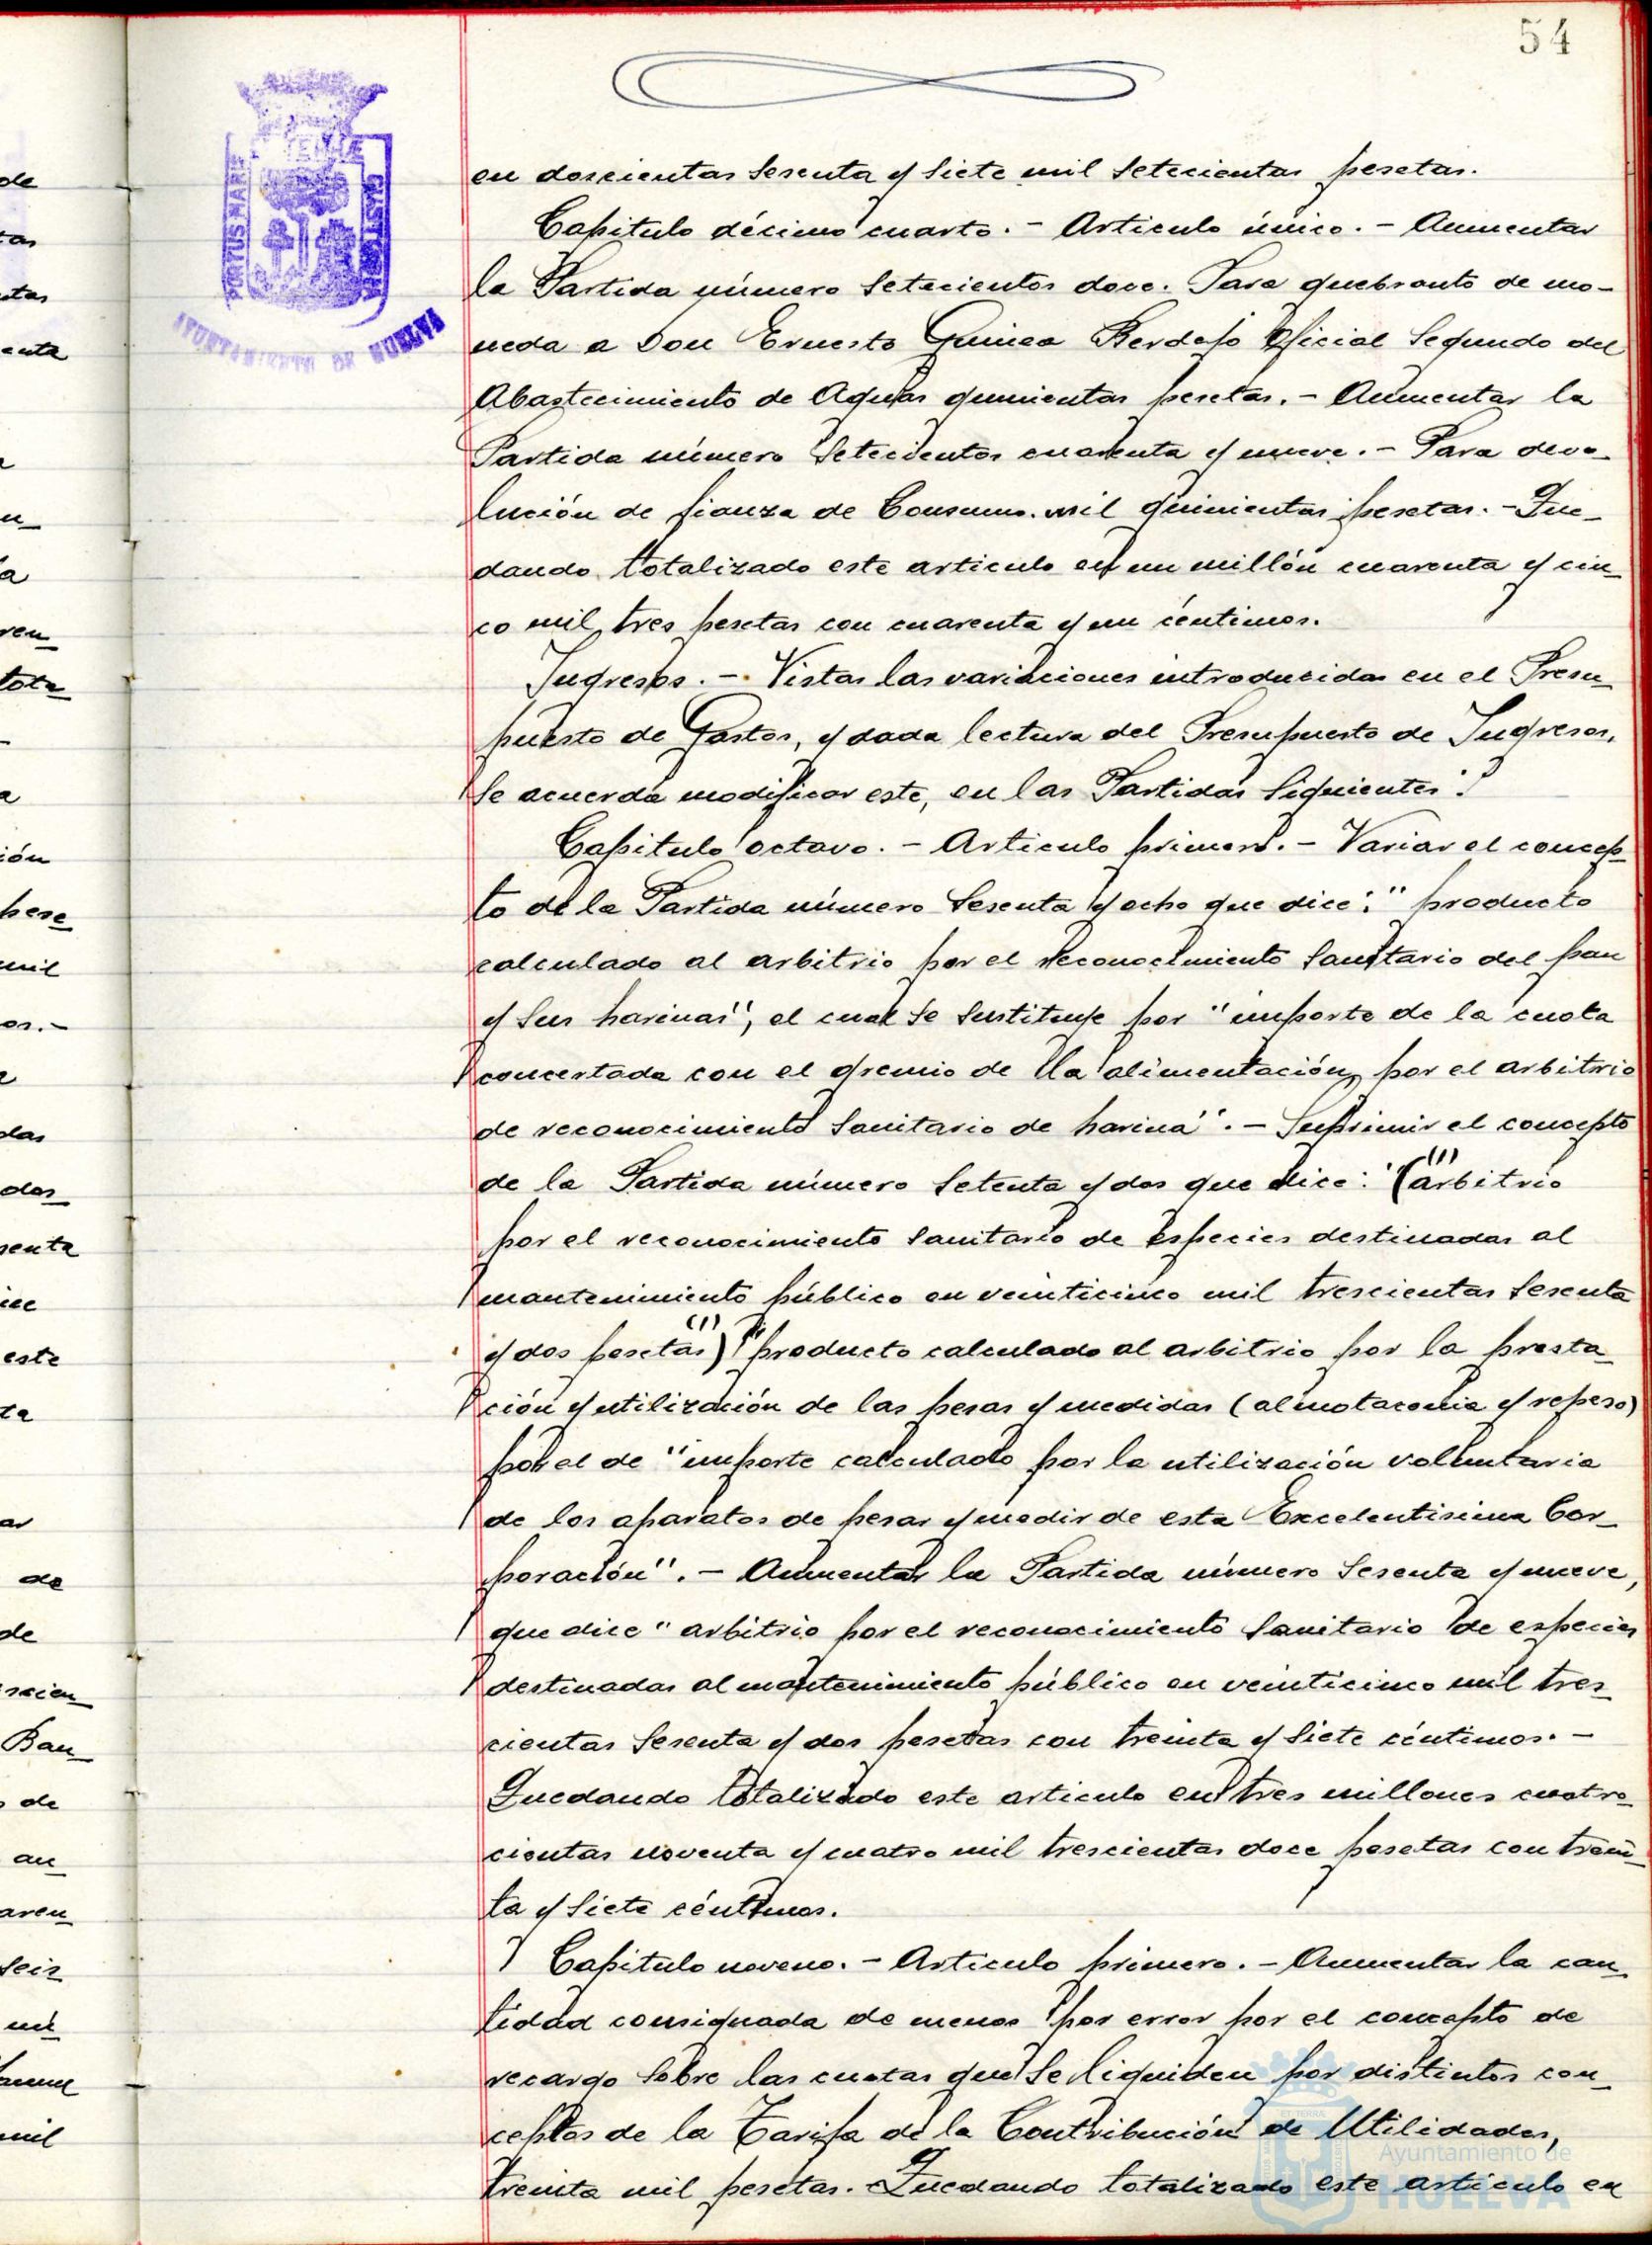 54
TERRAE
PORTUS MARIS
CUSTODIA
AYUNTAMIENTO DE HUELVA
en doscientas sesenta y siete mil setecientas pesetas.
Capitulo décimo cuarto. - Articulo único. - Aumentar
la Partida número setecientos doce. Para quebranto de mo-
neda a Don Ernesto Guinea Berdejo Oficial Segundo del
Abastecimiento de Aguas quinientas pesetas. - Aumentar la
Partida número setecientos cuarenta y nueve. - Para devo-
lución de fianza de Consumo. mil quinientas pesetas. - Que-
dando totalizado este articulo en un millón cuarenta y cin-
co mil tres pesetas con cuarenta y un céntimos.
Ingresos. - Vistas las variaciones introducidas en el Presu-
puesto de Gastos, y dada lectura del Presupuesto de Ingresos,
se acuerda modificar este, en las Partidas siguientes:
Capitulo octavo. - Articulo primero. - Variar el concep-
to de la Partida número sesenta y ocho que dice: "producto
calculado al arbitrio por el reconocimiento sanitario del pan
y sus harinas", el cual se sustituye por "importe de la cuota
concertada con el gremio de la alimentación, por el arbitrio
de reconocimiento sanitario de harina". - Suprimir el concepto
de la Partida número setenta y dos que dice: "(arbitrio (1)
por el reconocimiento sanitario de especies destinadas al
mantenimiento público en veinticinco mil trescientas sesenta
y dos pesetas) (1) "producto calculado al arbitrio por la presta-
ción y utilización de las pesas y medidas (almotacenia y repeso)
por el de "importe calculado por la utilización voluntaria
de los aparatos de pesar y medir de esta Excelentisima Cor-
poración". - Aumentar la Partida número sesenta y nueve,
que dice "arbitrio por el reconocimiento sanitario de especies
destinadas al mantenimiento público en veinticinco mil tres-
cientas sesenta y dos pesetas con treinta y siete céntimos. -
Quedando totalizado este articulo en tres millones cuatro-
cientas noventa y cuatro mil trescientas doce pesetas con trein-
ta y siete céntimos.
Capitulo noveno. - Articulo primero. - Aumentar la can-
tidad consignada de menos por error por el concepto de
recargo sobre las cuotas que se liquiden por distintos con-
ceptos de la Tarifa de la Contribución de Utilidades,
treinta mil pesetas. Quedando totalizado este articulo en
Ayuntamiento de
HUELVA